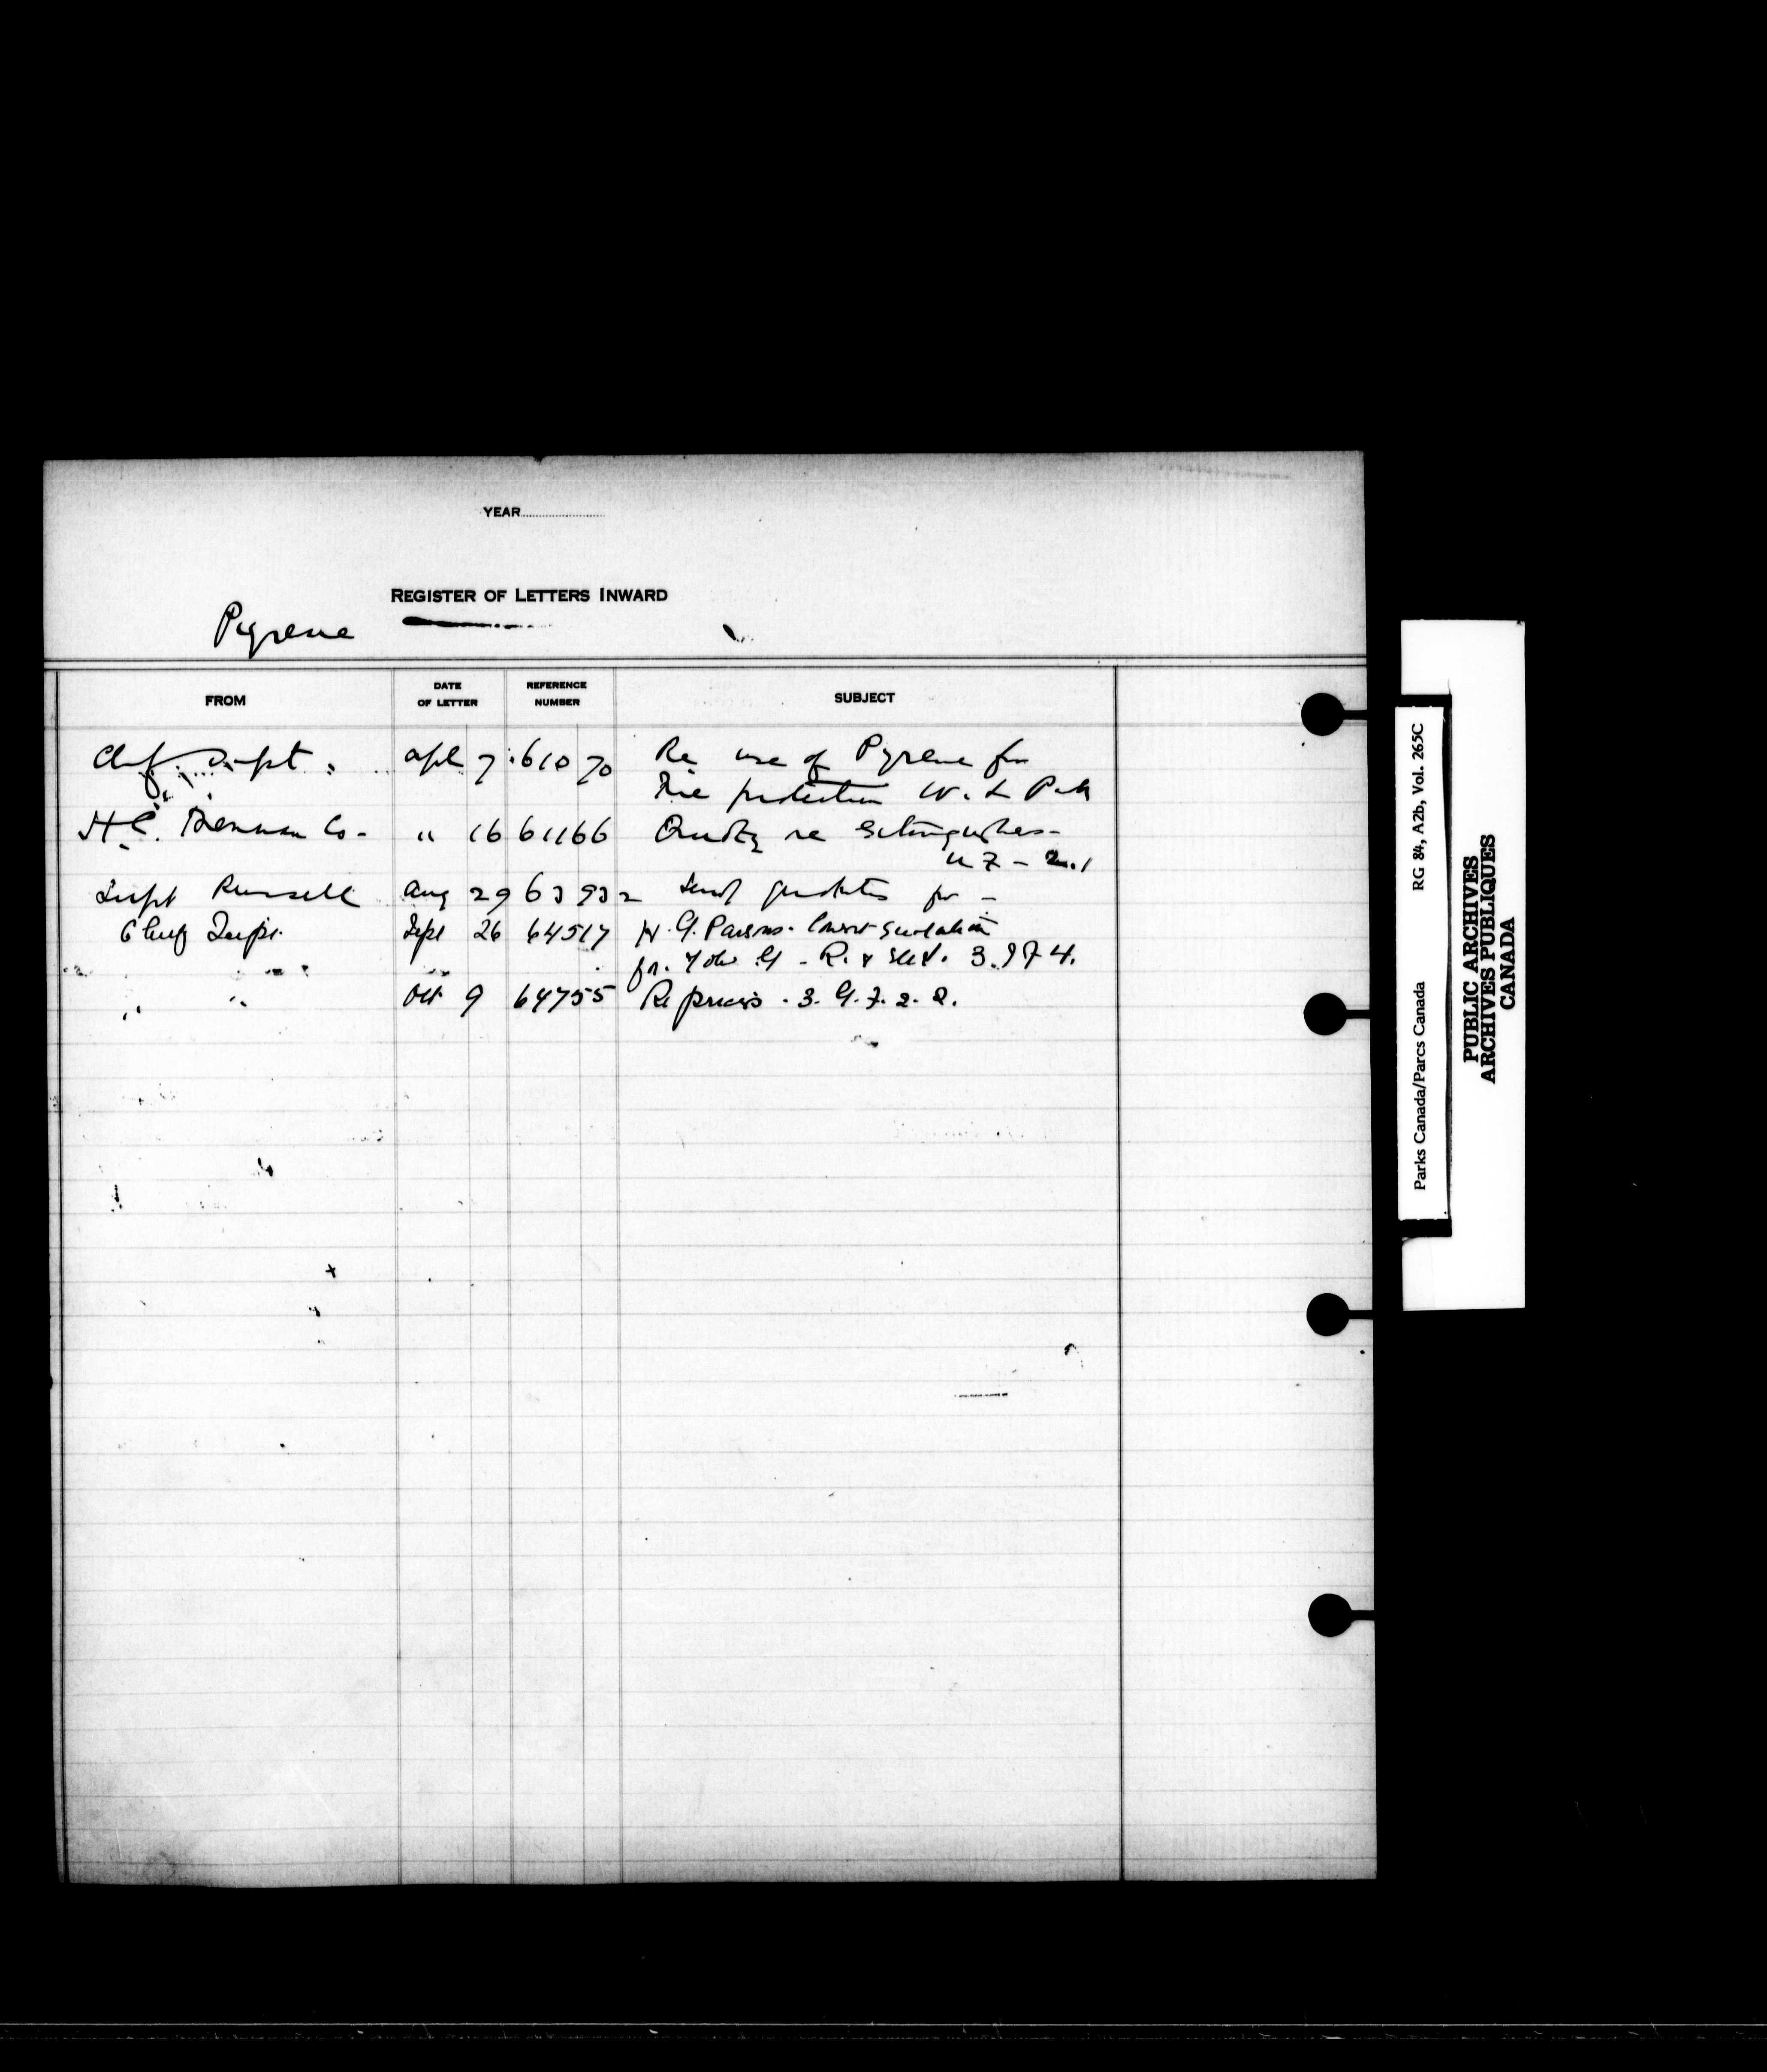 YEAR
REGISTER OF LETTERS INWARD
Pyrene
FROM DATE OF LETTER REFERENCE NUMBER SUBJECT
Chf. Supt. Apl 7 61070 Re use of Pyrene for
Fire protection W. L Park
H.C. Co. " 16 61166 re Extinguishers
U 7 - 2.1
Supt Russell Aug 29 63932 Send for -
Chief Supt. Sept 26 64517 H. G. Parsons.
for. R. & 3.
" " Oct 9 64755 Re prices . 3. G. 7. 2. 2.
Parks Canada/Parcs Canada RG 84, A2b, Vol. 265C
PUBLIC ARCHIVES
ARCHIVES PUBLIQUES
CANADA